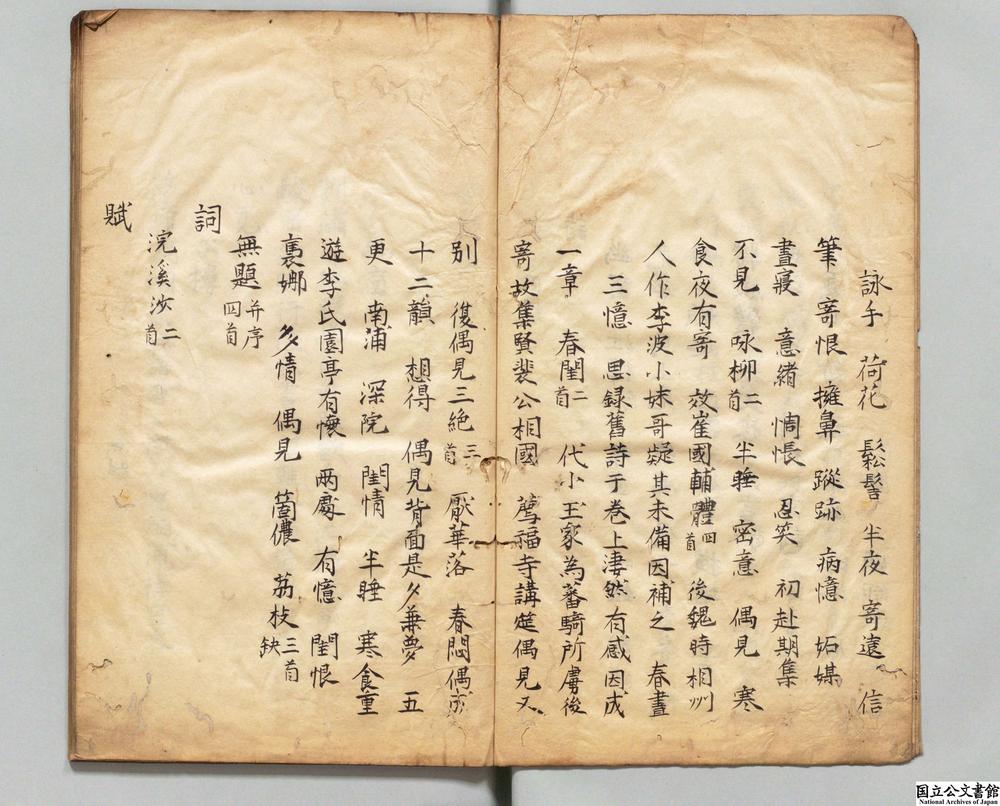 詠手 荷花 鬆髻 半夜 寄遠 信
筆 寄恨 擁鼻 蹤跡 病憶 妬媒
晝寢 意緒 惆悵 忍笑 初赴期集
不見 咏柳二首 半睡 密意 偶見 寒
食夜有寄 效崔國輔體四首 後魏時相州
人作李波小妹哥疑其未備因補之 春晝
三憶 思録舊詩于卷上凄然有感因成
一章 春閨二首 代小玉家為蕃騎所虜後
寄故集賢裴公相國 薦福寺講筵偶見又
別 復偶見三絶三首 厭華落 春悶偶成
十二韻 想得 偶見背面是夕兼夢 五
更 南浦 深院 閨情 半睡 寒食重
遊李氏園亭有懷 兩處 有憶 閨恨
裊娜 多情 偶見 箇儂 荔枝三首缺
無題并序四首
詞
浣溪沙二首
賦
国立公文書館
National Archives of Japan